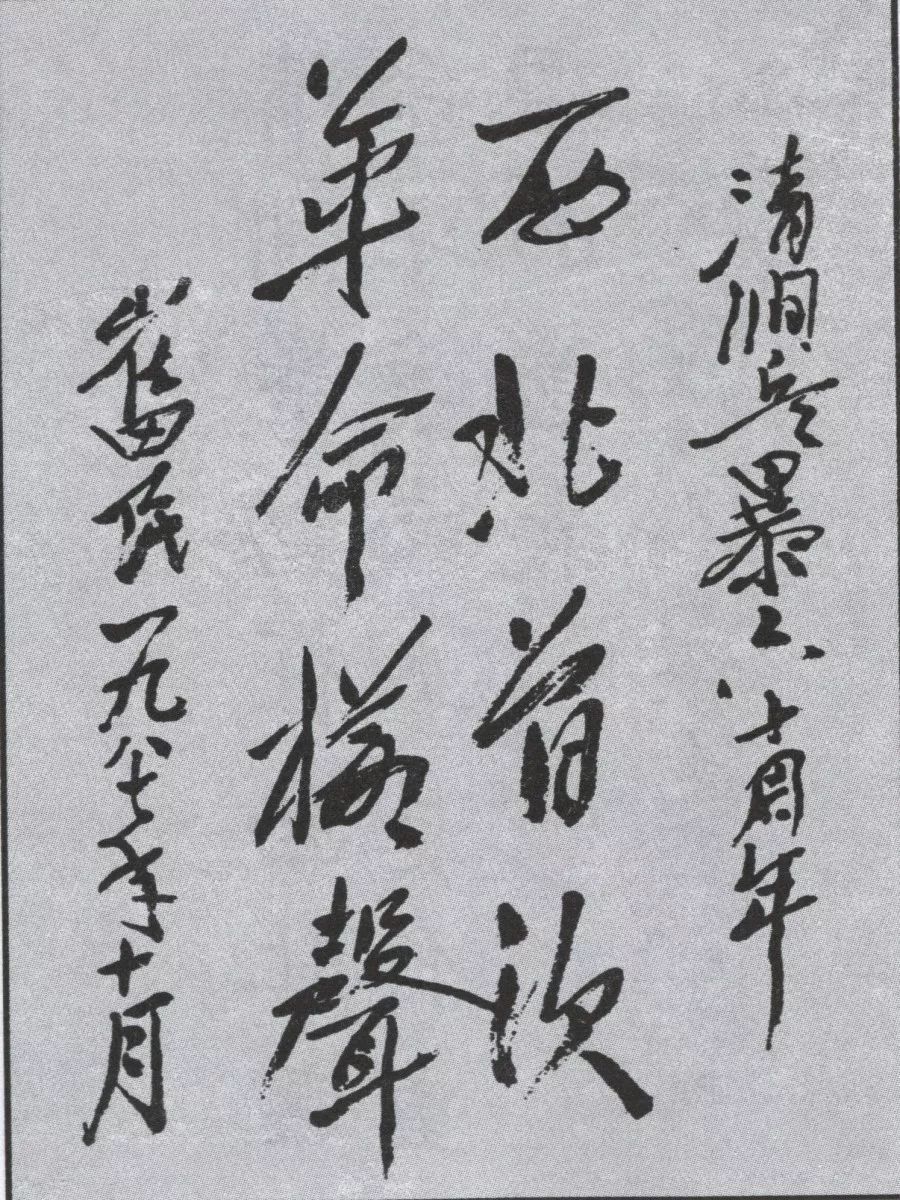 清涧兵暴六十周年
西北首次
革命槍聲
崔田民一九八七年十月